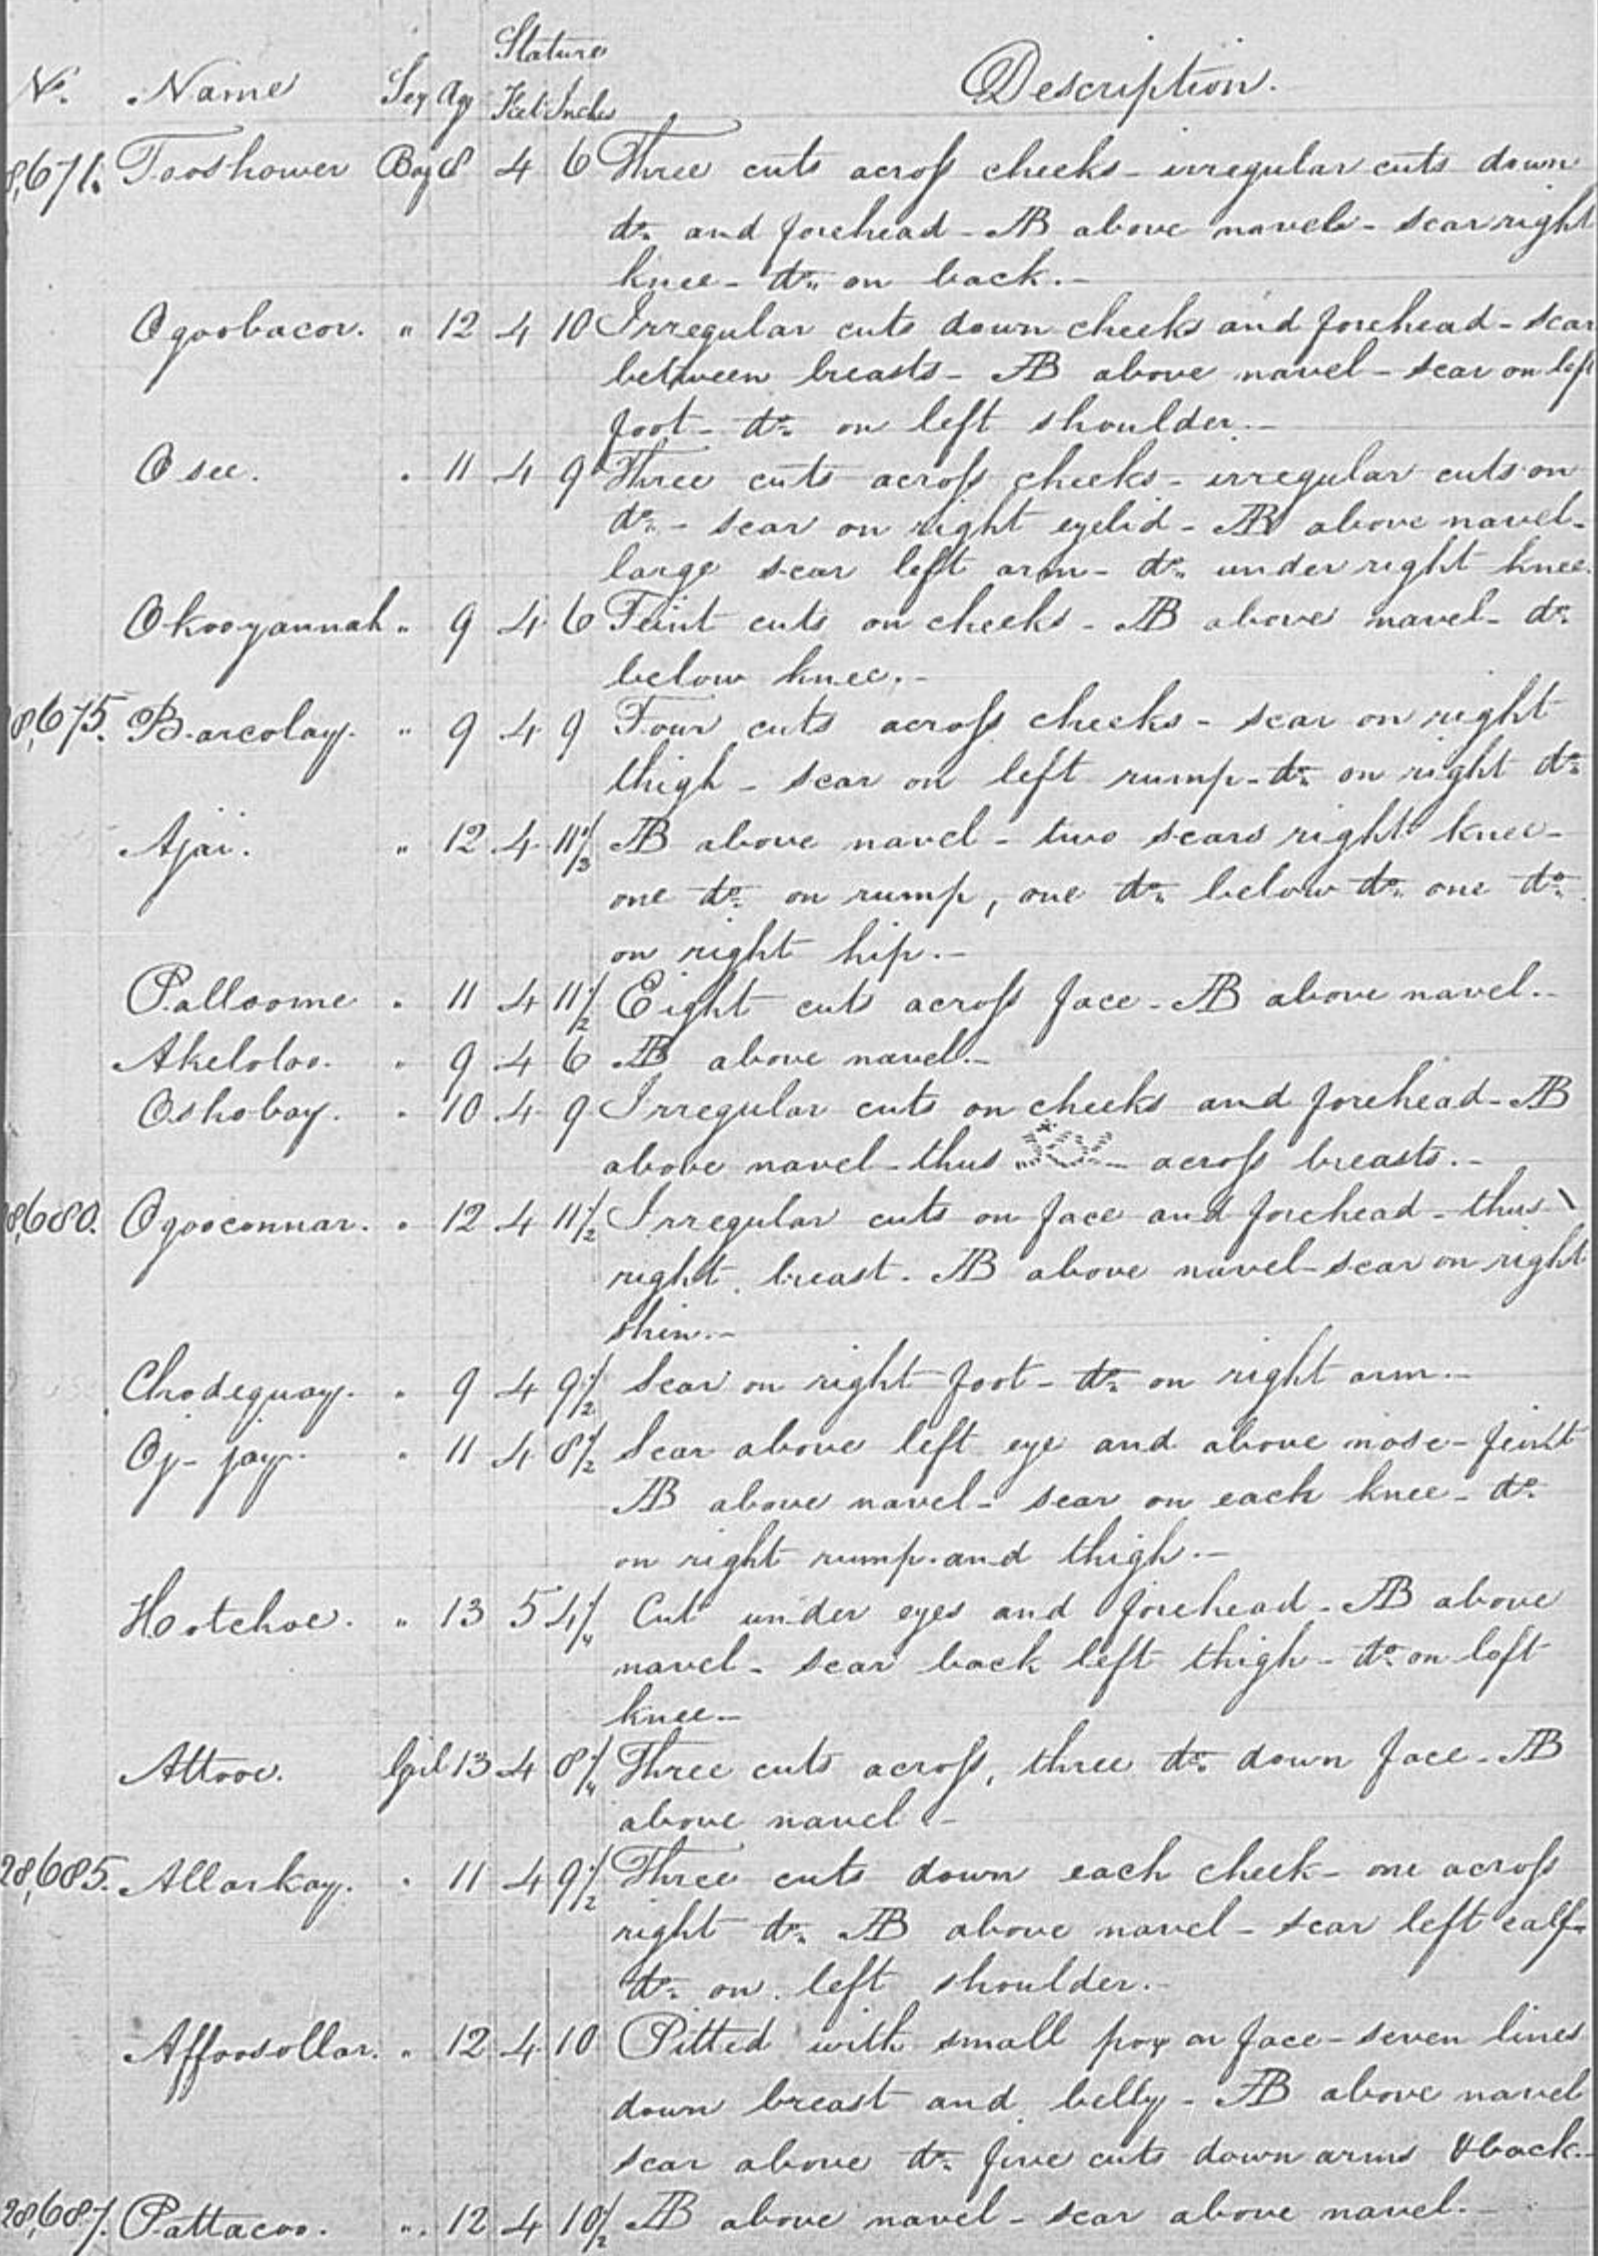 Stature
No. Name Sex Age Feet Inches Description.
8,671. Tooshower Boy 8 4 6 Three cuts across cheeks - irregular cuts down
do. and forehead - AB above navel - scar right
knee - do. on back. -
Ogoobacor. " 12 4 10 Irregular cuts down cheeks and forehead - scar
between breasts - AB above navel - scar on left
foot - do. on left shoulder. -
Osee. " 11 4 9 Three cuts across cheeks - irregular cuts on
do. - scar on right eyelid - AB above navel -
large scar left arm - do. under right knee.
Okooyannah " 9 4 6 Feint cuts on cheeks - AB above navel - do.
below knee. -
8,675. Barcolay. " 9 4 9 Four cuts across cheeks - scar on right
thigh - scar on left rump - do. on right do.
Ajai. " 12 4 11 1/2 AB above navel - two scars right knee -
one do. on rump, one do. below do. one do.
on right hip. -
Palloome " 11 4 11 1/2 Eight cuts across face - AB above navel. -
Akeloloo. " 9 4 6 AB above navel. -
Oshobay. " 10 4 9 Irregular cuts on cheeks and forehead - AB
above navel - thus across breasts. -
8,680. Ogooconnar. " 12 4 11 1/2 Irregular cuts on face and forehead - thus \
right breast. AB above navel - scar on right
shin. -
Chodeguay. " 9 4 9 1/2 Scar on right foot - do. on right arm. -
Oj-jay. " 11 4 8 1/2 Scar above left eye and above nose - feint
AB above navel - scar on each knee - do.
on right rump and thigh. -
Hotchoe. " 13 5 4 1/4 Cut under eyes and forehead - AB above
navel - scar back left thigh - do. on left
knee -
Attooe. Girl 13 4 8 1/4 Three cuts across, three do. down face - AB
above navel -
28,685. Allarkay. " 11 4 9 1/2 Three cuts down each cheek - one across
right do. AB above navel - scar left calf -
do. on left shoulder. -
Affoosollar. " 12 4 10 Pitted with small pox on face - seven lines
down breast and belly - AB above navel
scar above do. five cuts down arms & back. -
28,687. Pattacoo. " 12 4 10 1/2 AB above navel - scar above navel. -